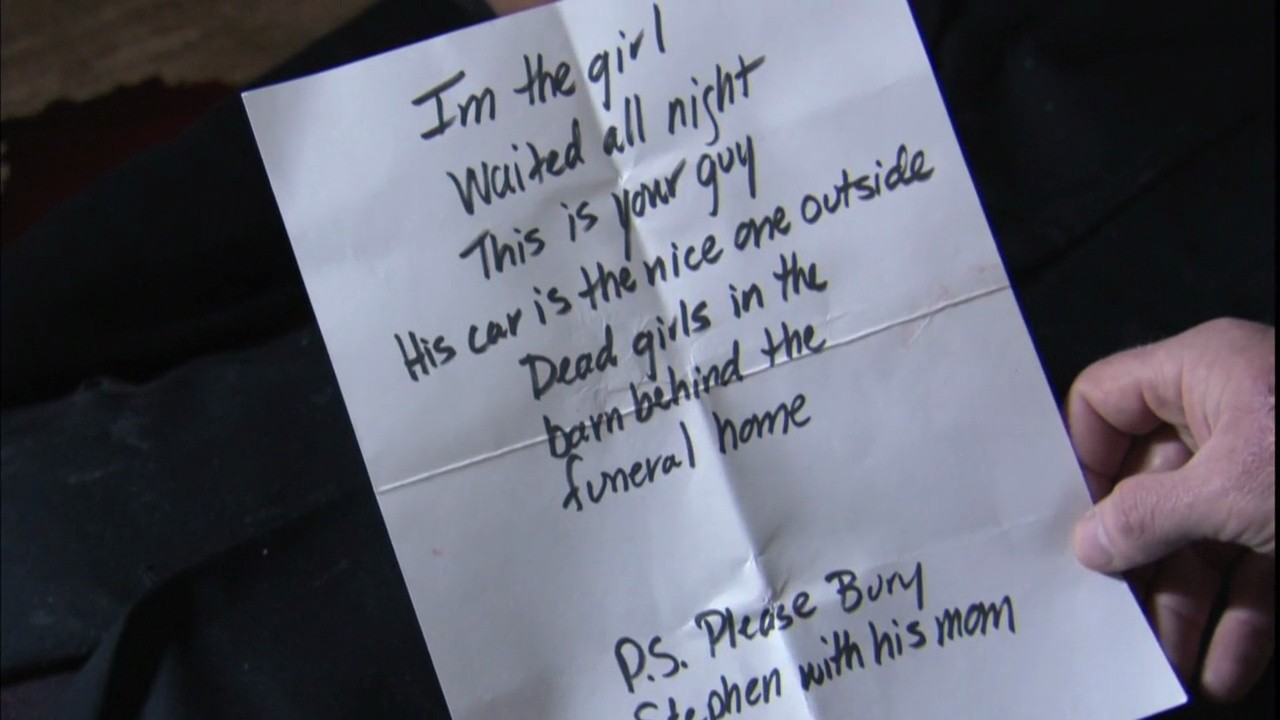 Im the girl
Waited all night
This is your guy
His car is the nice one outside
Dead girls in the
barn behind the
funeral home
P.S. Please Bury
Stephen with his mom